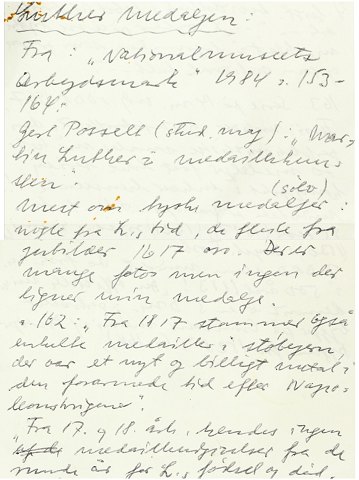 Luther medaljen:
Fra: "Nationalmuseets
Arbejdsmark" 1984 s. 153-
164:
Gert Posselt (stud. mag.): "Mar-
tin Luther i medaillekuns-
ten".
(sølv)
mest om tyske medaljer:
nogle fra L.s tid, de fleste fra
jubilæer 1617 osv. Der er
mange fotos men ingen der
ligner min medalje.
s. 162: "Fra 1817 stammer også
enkelte medailler i støbejern,
der var et nyt og billigt metal i
den forarmede tid efter Napo-
leonskrigene".
"Fra 17. og 18. årh. kendes ingen
medailleudgivelser fra de
runde år for L.s fødsel og død.